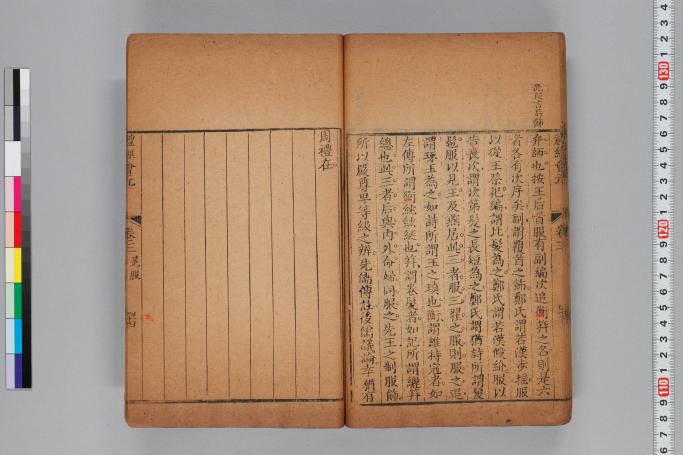 此段言后飾
弁師也按王后首服有副編次追衡笄之名則是六
者各有次序矣副謂覆首之飾鄭氏謂若漢步搖服
以從王祭祀編謂比髮為之鄭氏謂若漢假紒服以
告喪次謂次第髮之長短為之鄭氏謂猶詩所謂髲
髢服以見王及燕居此三者服三翟之服則服之追
謂琢玉為之如詩所謂玉之瑱也衡謂維持冠者如
左傳所謂衡紞紘綖也笄謂卷髮者如記所謂纚笄
總也此三者后與內外命婦同服之先王之制服飾
所以嚴尊卑等級之辨先儒傳註後儒議論幸猶有
周禮在
禮經會元
卷三 冕服
四十四